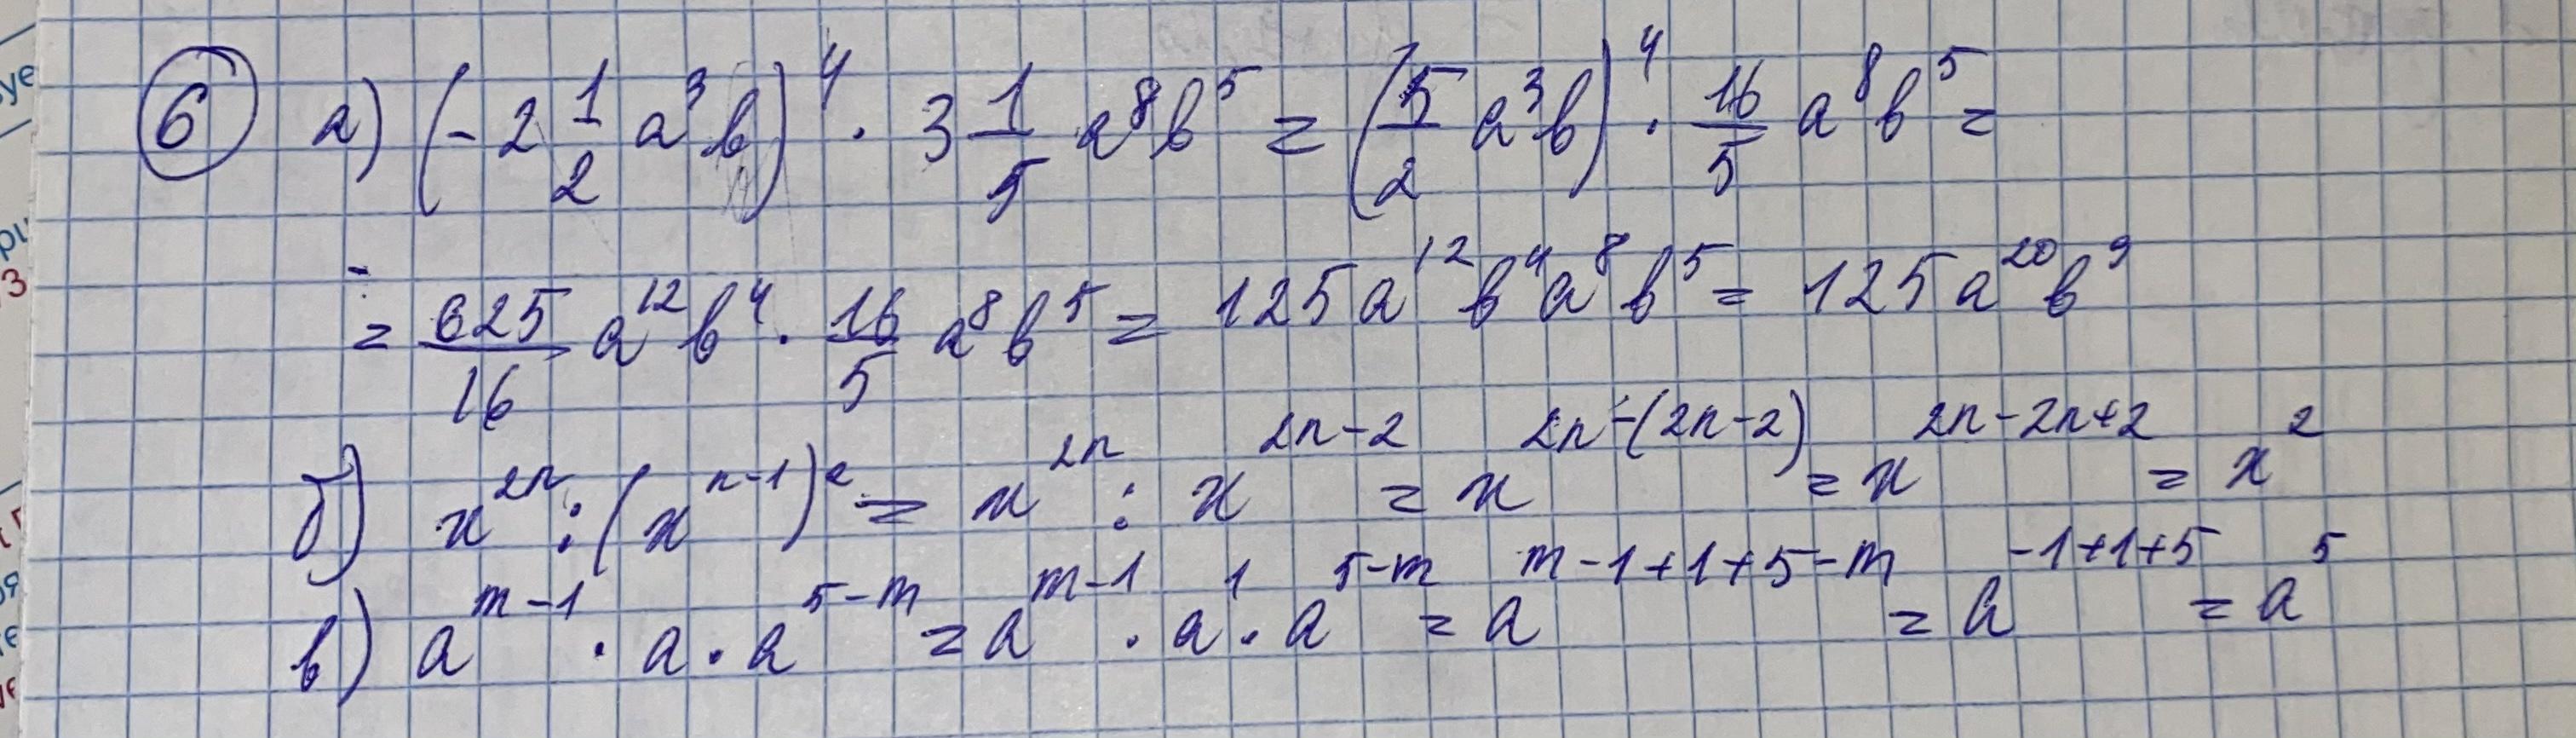 6 а) (-2 1/2 a³b)⁴ · 3 1/5 a⁸b⁵ = (5/2 a³b)⁴ · 16/5 a⁸b⁵ =
= 625/16 a¹²b⁴ · 16/5 a⁸b⁵ = 125a¹²b⁴a⁸b⁵ = 125a²⁰b⁹
б) x²ⁿ : (xⁿ⁻¹)² = x²ⁿ : x²ⁿ⁻² = x²ⁿ⁻⁽²ⁿ⁻²⁾ = x²ⁿ⁻²ⁿ⁺² = x²
в) aᵐ⁻¹ · a · a⁵⁻ᵐ = aᵐ⁻¹ · a¹ · a⁵⁻ᵐ = aᵐ⁻¹⁺¹⁺⁵⁻ᵐ = a⁻¹⁺¹⁺⁵ = a⁵